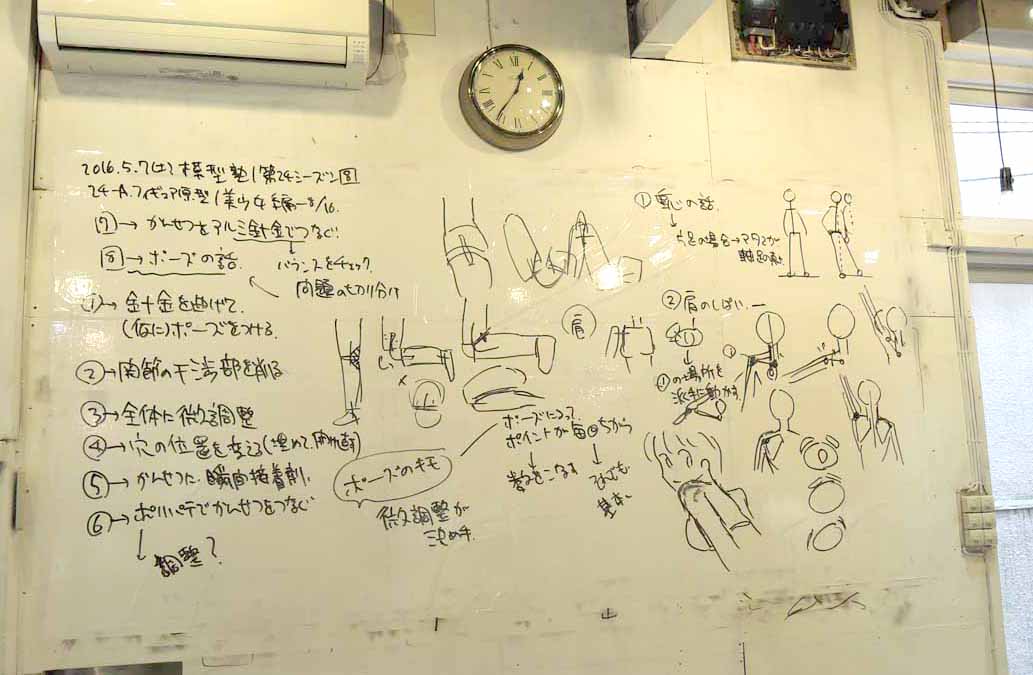 2016.5.7(土) 模型塾/第24シーズン⑧
24-A.フィギュア原型/美少女編-8/16.
⑦→かんせつをアルミ針金でつなぐ!
↓
バランスをチェック.
⑧→ポーズの話.
問題の切り分け
①→針金を曲げて.
(仮に)ポーズをつける.
②→関節の干渉部を削る
③→全体に微調整
④→穴の位置を変える(埋めて、開け直す)
⑤→かんせつに、瞬間接着剤.
⑥→ポリパテでかんせつをつなぐ
↓
調整?
肩
ポーズのキモ
微調整が
決め手.
ポーズによって.
ポイントが毎回ちがう
↓
数をこなす
↓
基本
①重心の話.
↓
片足の場合→アタマが
軸足の
②肩のしばい.ー
↓
①の場所を
派手に動かす